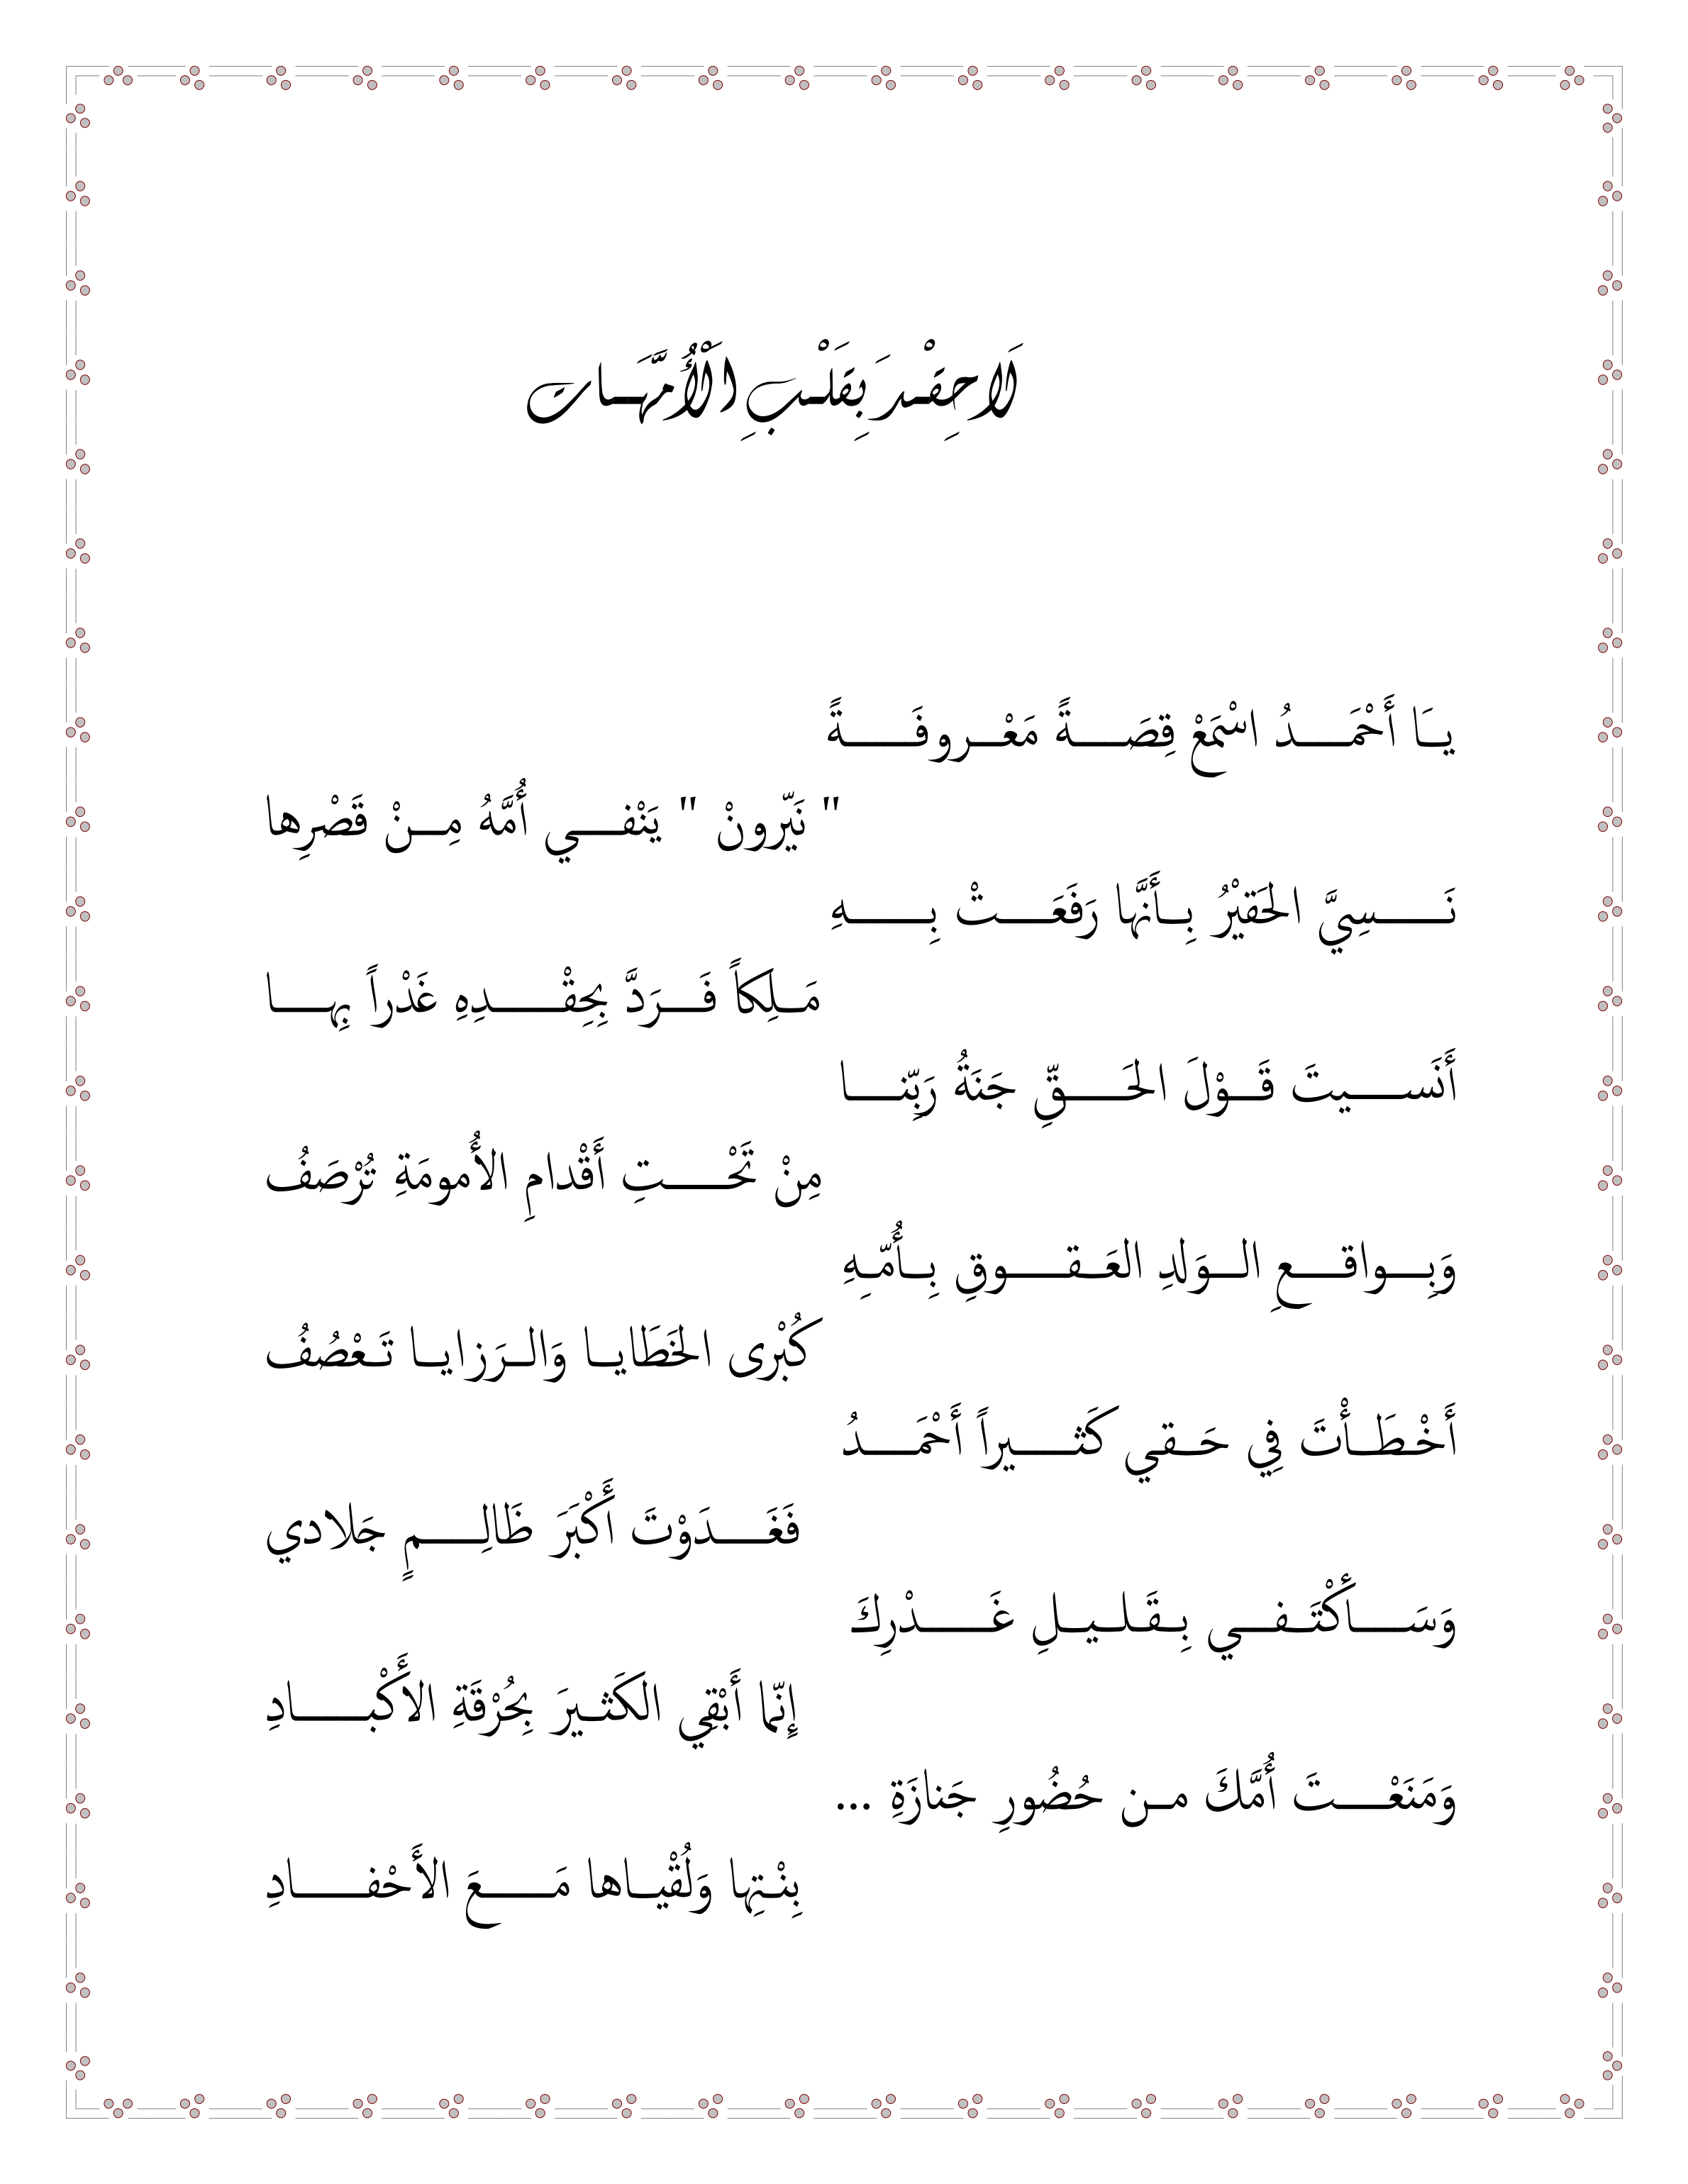 لَا حِقْد بِقَلْبِ اَلْأُمَّهَات
يَا أَحْمَدُ اسْتَمَعْ قِصَةً مَعْروفَةً
" نَيّرونْ " يَنْفي أُمَّهُ مِنْ قَصْرِها
نَسِيَّ الحَقيْرُ بِأَنَّها رَفَعَتْ بِهِ
مَلِكاً فَرَدَّ بِحِقْدِهِ غَدْراً بِها
أَنَسيتَ قَوْلَ الحَقِّ جَنَةُ رَبِّنا
مِنْ تَحْتِ أَقْدامِ الأُمومَةِ تُرْصَفُ
وَبِواقعِ الوَلدِ العَقوقِ بِأُمّهِ
كُبْرى الخَطَايا وَالرَزايا تَعْصُفُ
أَخْطَأْتَ فِي حَقي كَثيراً أَحْمَدُ
فَغَدَوْتَ أَكْبَرَ ظَالِمٍ جَلادي
وَسَأكْتَفي بِقَليلِ غَدْرِكَ
إِنّما أَبْقِي الكَثيرَ بِحُرْقَةِ الأَكْبادِ
وَمَنَعْتَ أُمَّكَ من حُضُورِ جَنازَةِ ...
بِنْتِها وَلُقْياها مَعَ الأَحْفادِ